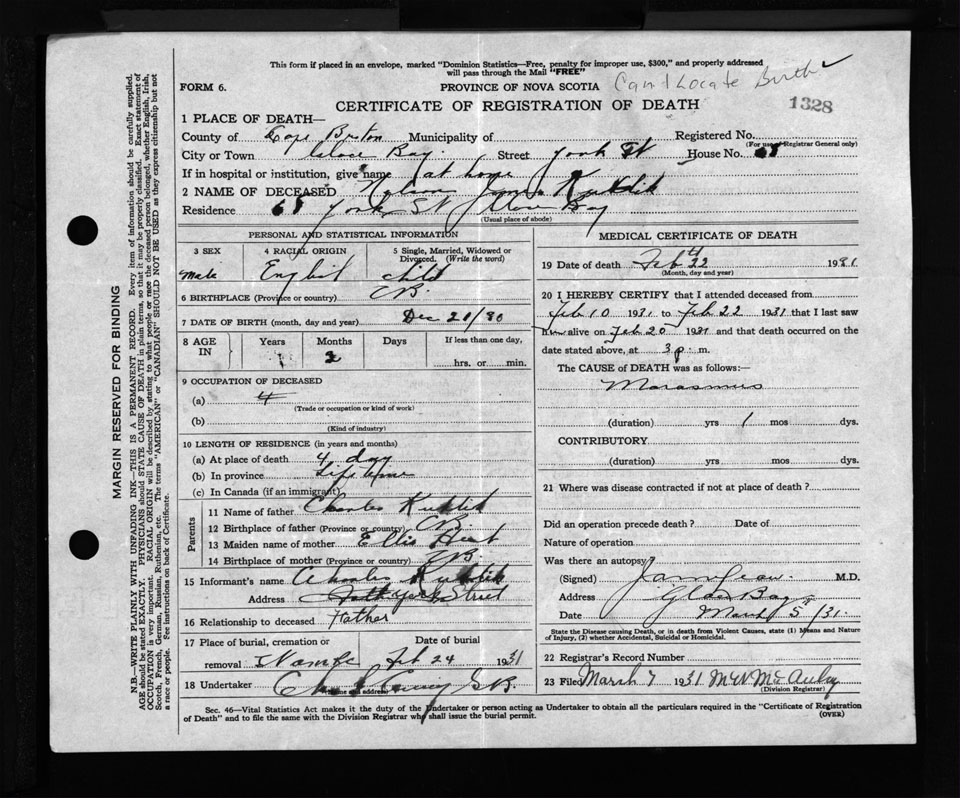 This form if placed in an envelope, marked "Dominion Statistics—Free, penalty for improper use, $300," and properly addressed
will pass through the Mail "FREE"
Cant Locate Birth ✓
FORM 6. PROVINCE OF NOVA SCOTIA
CERTIFICATE OF REGISTRATION OF DEATH 1328
1 PLACE OF DEATH—
County of Cape Breton Municipality of Registered No.
(For use of Registrar General only)
City or Town Glace Bay. Street York St House No. 68
If in hospital or institution, give name at home
2 NAME OF DECEASED James
Residence 68 York St Glace Bay
(Usual place of abode)
PERSONAL AND STATISTICAL INFORMATION
3 SEX 4 RACIAL ORIGIN 5 Single, Married, Widowed or Divorced. (Write the word)
Male English child
6 BIRTHPLACE (Province or country) CB.
7 DATE OF BIRTH (month, day and year) Dec 20/30
8 AGE IN Years Months Days If less than one day,
2 hrs. or min.
9 OCCUPATION OF DECEASED
(a)
(Trade or occupation or kind of work)
(b)
(Kind of industry)
10 LENGTH OF RESIDENCE (in years and months)
(a) At place of death 4 day
(b) In province Life time
(c) In Canada (if an immigrant)
Parents
11 Name of father Charles
12 Birthplace of father (Province or country) CB.
13 Maiden name of mother
14 Birthplace of mother (Province or country) CB.
15 Informant's name Charles
Address York Street
16 Relationship to deceased Father
17 Place of burial, cremation or Date of burial
removal Feb 24 1931
18 Undertaker
(Name and address)
MEDICAL CERTIFICATE OF DEATH
19 Date of death Feb 22 1931
(Month, day and year)
20 I HEREBY CERTIFY that I attended deceased from
Feb 10 1931 to Feb 22 1931 that I last saw
him alive on Feb 20 1931 and that death occurred on
date stated above, at 3 p. m.
The CAUSE of DEATH was as follows:—
Marasmus
(duration) yrs 1 mos dys.
CONTRIBUTORY
(duration) yrs mos dys.
21 Where was disease contracted if not at place of death?
Did an operation precede death? Date of
Nature of operation
Was there an autopsy?
(Signed) M.D.
Address Glace Bay
Date March 5 /31.
State the Disease causing Death, or in death from Violent Causes, state (1) Means and Nature
of Injury, (2) whether Accidental, Suicidal or Homicidal.
22 Registrar's Record Number
23 Filed March 7 1931
(Division Registrar)
Sec. 46—Vital Statistics Act makes it the duty of the Undertaker or person acting as Undertaker to obtain all the particulars required in the "Certificate of Registration
of Death" and to file the same with the Division Registrar who shall issue the burial permit. (OVER)
MARGIN RESERVED FOR BINDING
N.B.—WRITE PLAINLY WITH UNFADING INK—THIS IS A PERMANENT RECORD. Every item of information should be carefully supplied.
AGE should be stated EXACTLY. PHYSICIANS should STATE CAUSE OF DEATH in plain terms, so that it may be properly classified. Exact statement of
OCCUPATION is very important. RACIAL ORIGIN will be described by stating to what people or race the deceased person belonged, whether English, Irish,
Scotch, French, German, Russian, Ruthenian, etc. The terms "AMERICAN" or "CANADIAN" SHOULD NOT BE USED as they express citizenship but not
a race or people. See instructions on back of Certificate.